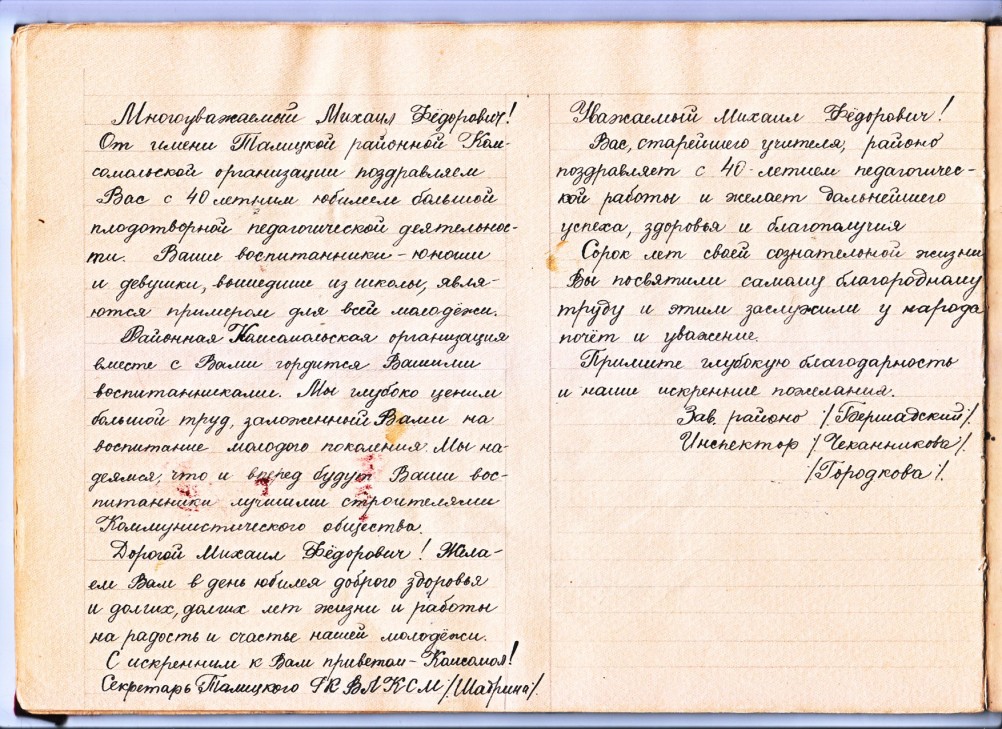 Многоуважаемый Михаил Фёдорович!
От имени Талицкой районной Ком-
сомольской организации поздравляем
Вас с 40 летним юбилеем большой
плодотворной педагогической деятельнос-
ти. Ваши воспитанники - юноши
и девушки, вышедшие из школы, явля-
ются примером для всей молодёжи.
Районная Комсомольская организация
вместе с Вами гордится Вашими
воспитанниками. Мы глубоко ценим
большой труд, заложенный Вами на
воспитание молодого поколения. Мы на-
деямся, что и вперед будут Ваши вос-
питанники лучшими строителями
Коммунистического общества.
Дорогой Михаил Фёдорович! Жела-
ем Вам в день юбилея доброго здоровья
и долгих, долгих лет жизни и работы
на радость и счастье нашей молодёжи.
С искренним к Вам приветом - Комсомол!
Секретарь Талицкого РК ВЛКСМ /Шабрина/.
Уважаемый Михаил Фёдорович!
Вас, старейшего учителя, районо
поздравляет с 40-летием педагогичес-
кой работы и желает дальнейшего
успеха, здоровья и благополучия
Сорок лет своей сознательной жизни
Вы посвятили самому благородному
труду и этим заслужили у народа
почёт и уважение.
Примите глубокую благодарность
и наши искренние пожелания.
Зав. районо /Бершадский/.
Инспектор /Чеканникова/.
/Городкова/.